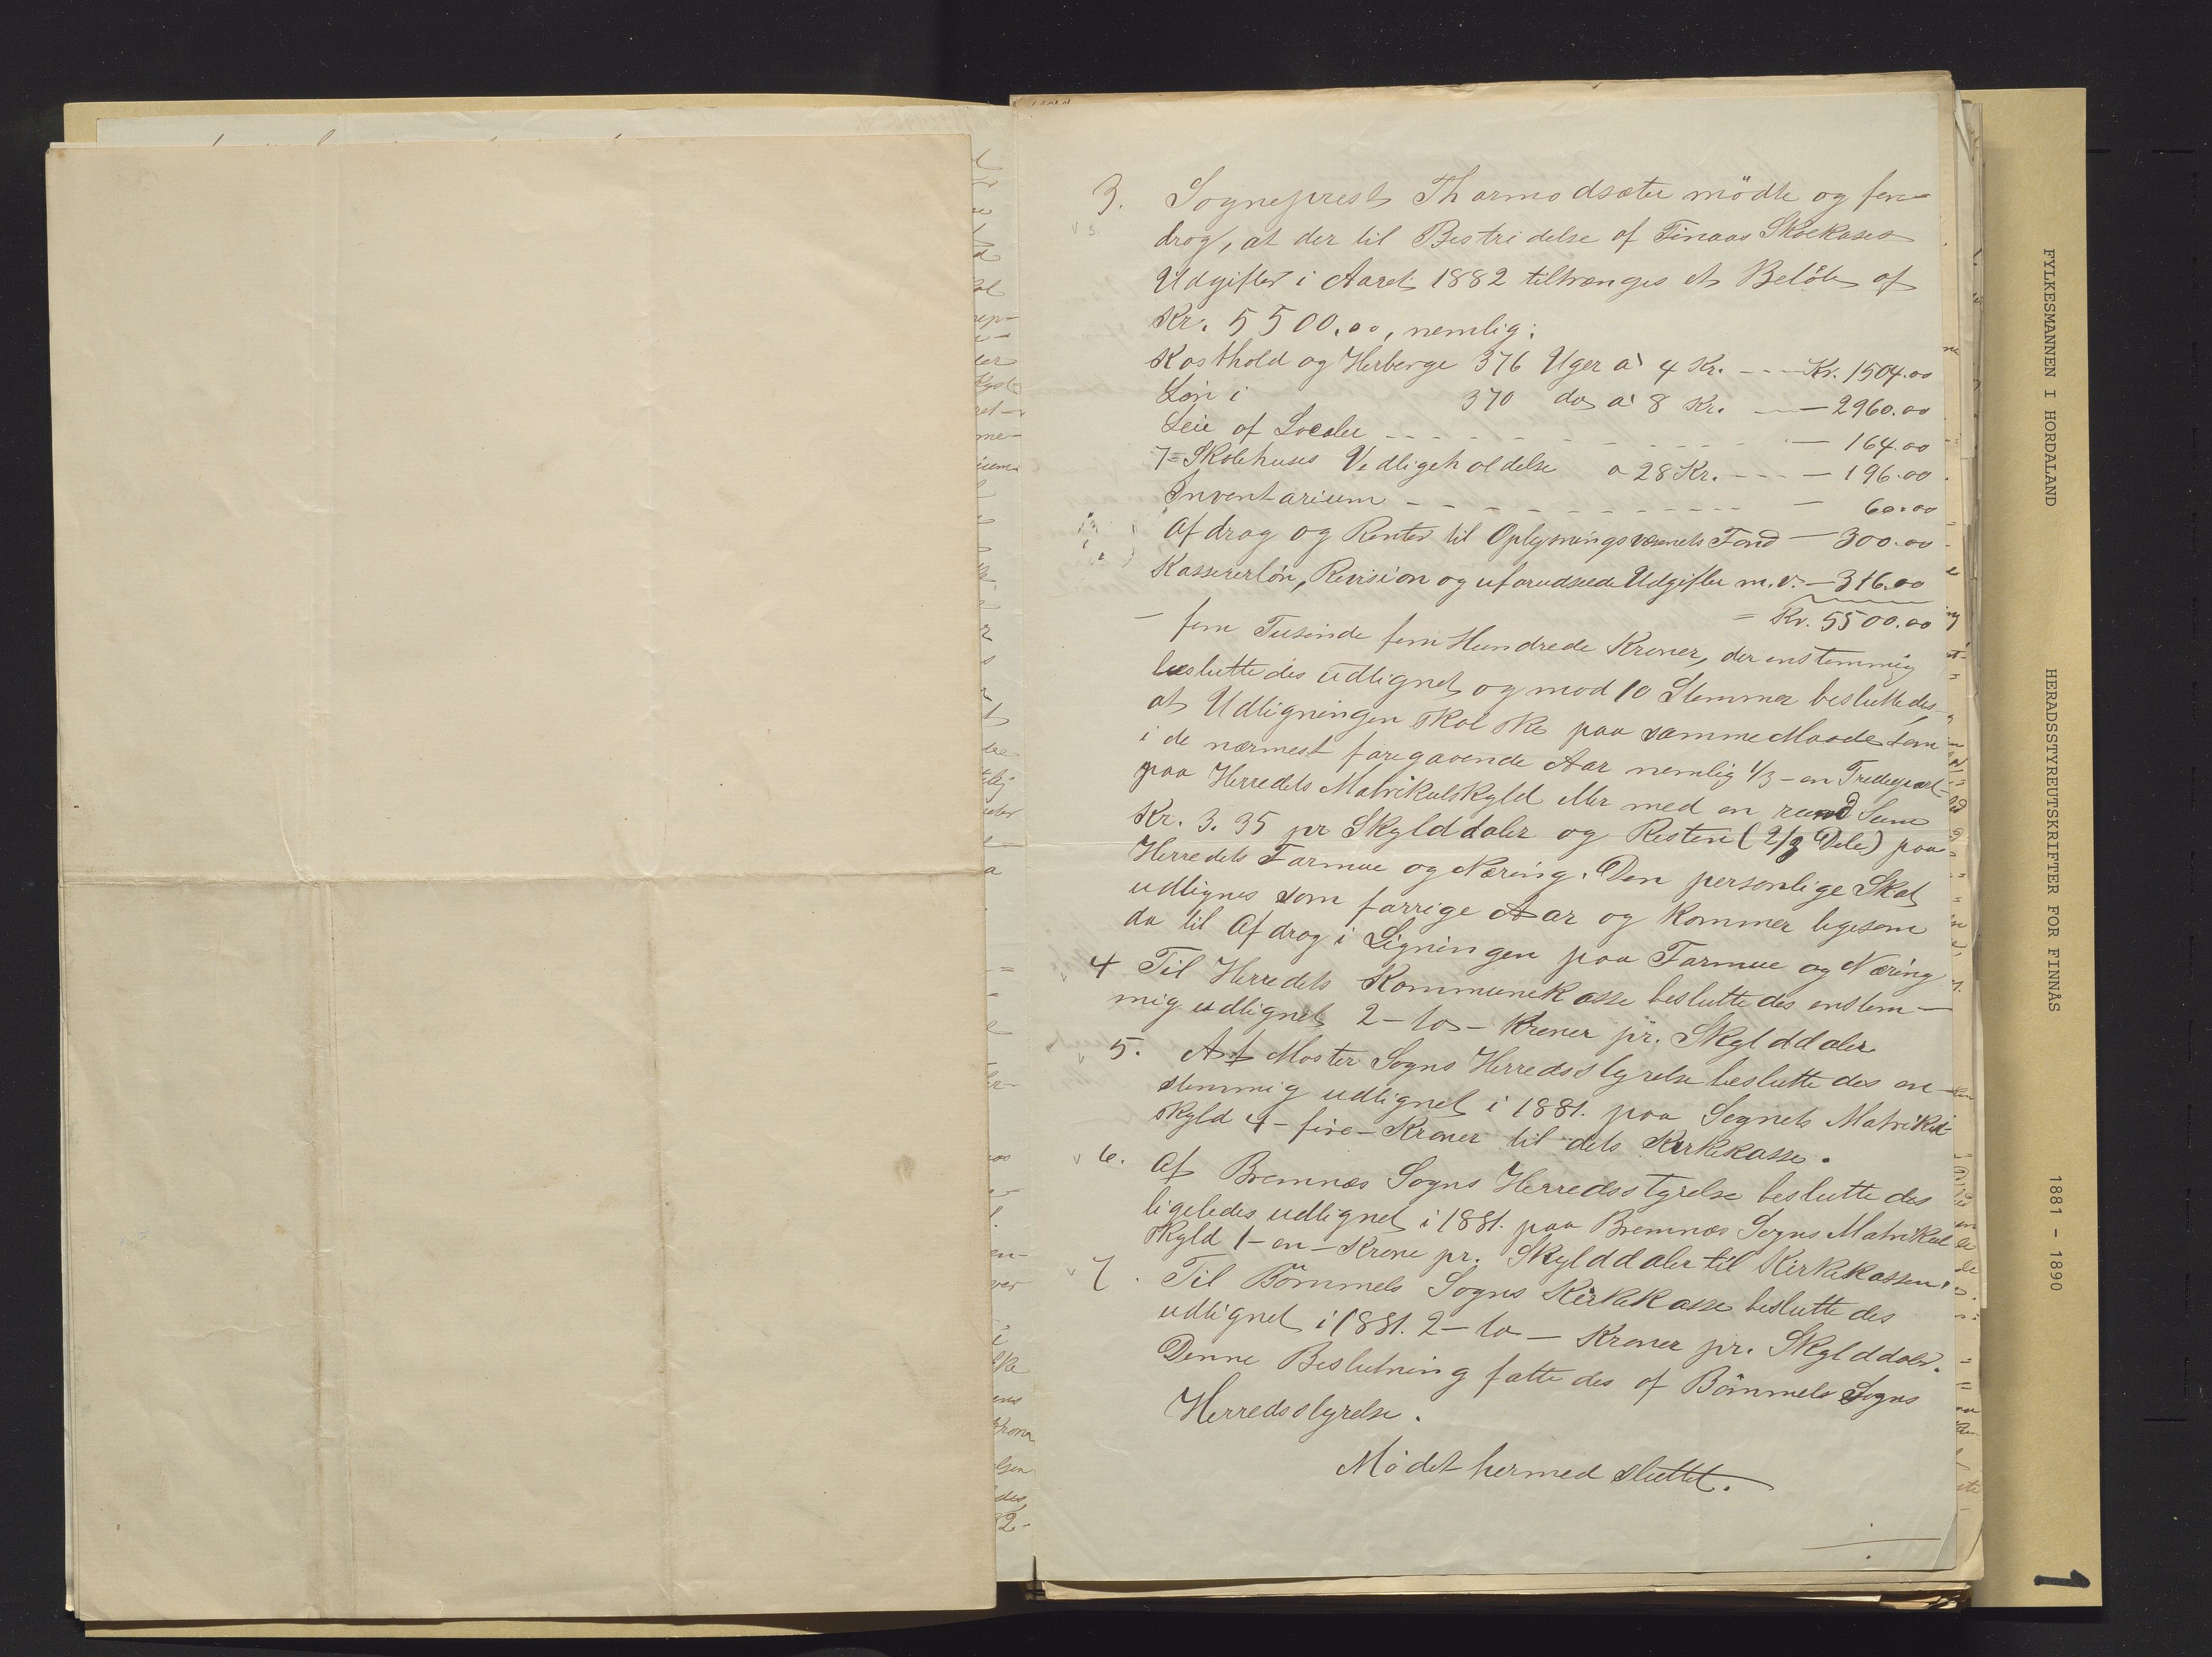 3. Sogneprest Thormodsæter mödte og fore-
drog, at der til Bestridelse af Finaas Skolekases
Udgifter i Aaret 1882 tiltrænges et Belöb af
Kr. 5500.00, nemlig:
Kosthold og Herberge 376 Uger à 4 Kr. - - - Kr. 1504.00
Løn i 370 do à 8 Kr. - - 2960.00
Leie af Localer - - - - - - - - - 164.00
7 = Skolehuses Vedligeholdelse a 28 Kr. - - - - 196.00
Inventarium - - - - - - - - - 60.00
Afdrag og Renter til Oplysningsvæsenets Fond - 300.00
Kassererlön, Revision og uforudseede Udgifter m.v. - 316.00
= Kr. 5500.00
- fem Tusinde fem Hundrede Kroner, der enstemmig
besluttedes udlignet og mod 10 Stemmer besluttedes,
at Udligningen skal ske paa samme Maade som
i de nærmest foregaaende Aar nemlig 1/3 - en Trediepart -
paa Herredets Matrikulskyld eller med en rund Sum
Kr. 3.35 pr Skylddaler og Resten (2/3 Dele) paa
Herredets Formue og Næring. Den personlige Skat
udlignes som forrige Aar og kommer ligesom
da til Afdrag i Ligningen paa Formue og Næring
4 Til Herredets Kommunekasse besluttedes enstem-
mig udlignet 2 - to - Kroner pr. Skylddaler
5. Af Moster Sogns Herredsstyrelse besluttedes en-
stemmig udlignet i 1881. paa Sognets Matrikul
skyld 4 - fire - Kroner til dets Kirkekasse.
6. Af Bremnæs Sogns Herredsstyrelse besluttedes
ligeledes udlignet i 1881. paa Bremnæs Sogns Matrikul
skyld 1 - en - Krone pr. Skylddaler til Kirkekassen.
7. Til Bömmels Sogns Kirkekasse besluttedes
udlignet i 1881. 2 - to - Kroner pr. Skylddaler.
Denne Beslutning fattedes af Bömmels Sogns
Herredsstyrelse.
Mödet hermed sluttet.
FYLKESMANNEN I HORDALAND HERADSSTYREUTSKRIFTER FOR FINNÅS 1881 - 1890
1